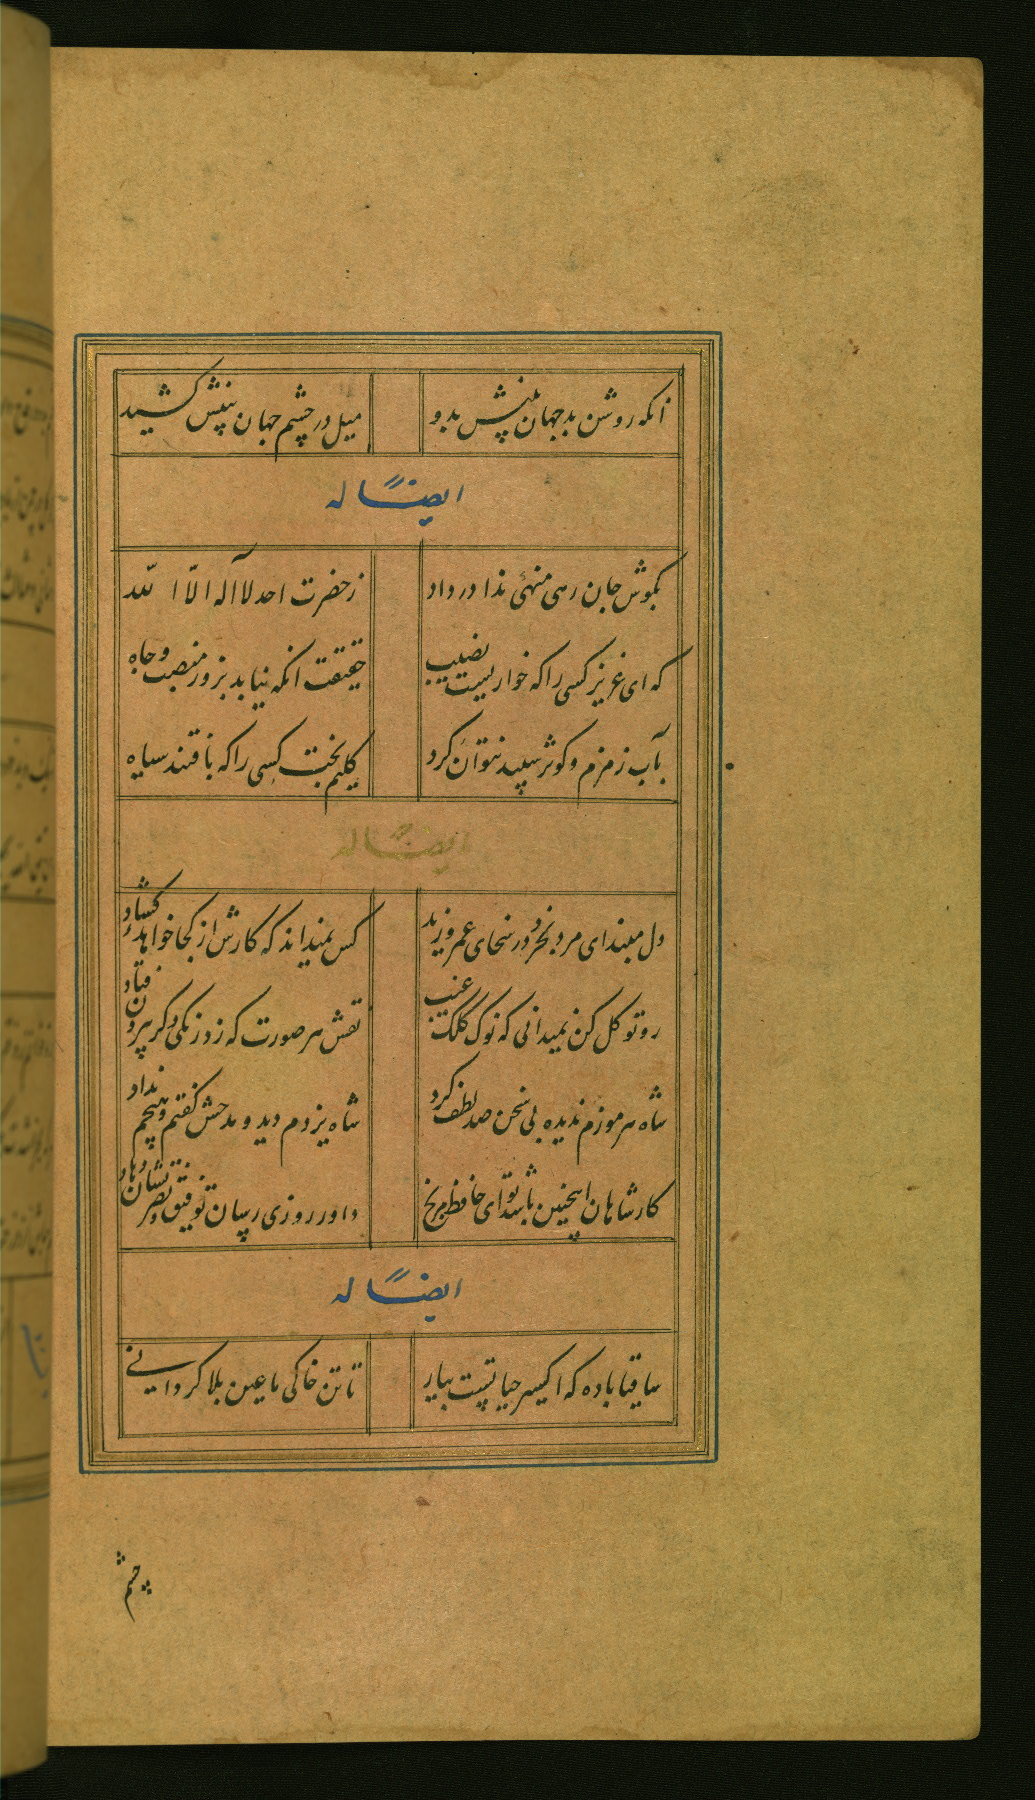 آنکه روشن بد جهان بینیش بدو
میل در چشم جهان بینش کشید
ایضاً له
بگوش جان رهی منهئی ندا در داد
ز حضرت احد لا اله الا الله
که ای عزیز کسی را که خواریست نصیب
حقیقت آنکه نیابد بزور منصب و جاه
بآب زمزم و کوثر سپید نتوان کرد
کلیم بخت کسی را که بافتند سیاه
ایضاً له
دل مبند ای مرد بخرد در سخای عمرو و زید
کس نمیداند که کارش از کجا خواهد کشاد
رو توکل کن نمیدانی که نوک کلک غیب
نقش هر صورت که زد رنگی دگر بیرون فتاد
شاه هرموزم ندیده بی سخن صد لطف کرد
شاه یزدم دید و مدحش گفتم و هیچم نداد
کار شاهان اینچنین باشد تو ای حافظ مرنج
داور روزی رسان توفیق و نصرتشان دهاد
ایضاً له
ساقیا باده که اکسیر حیاتست بیار
تا تن خاکی ما عین بقا گردانی
چشم